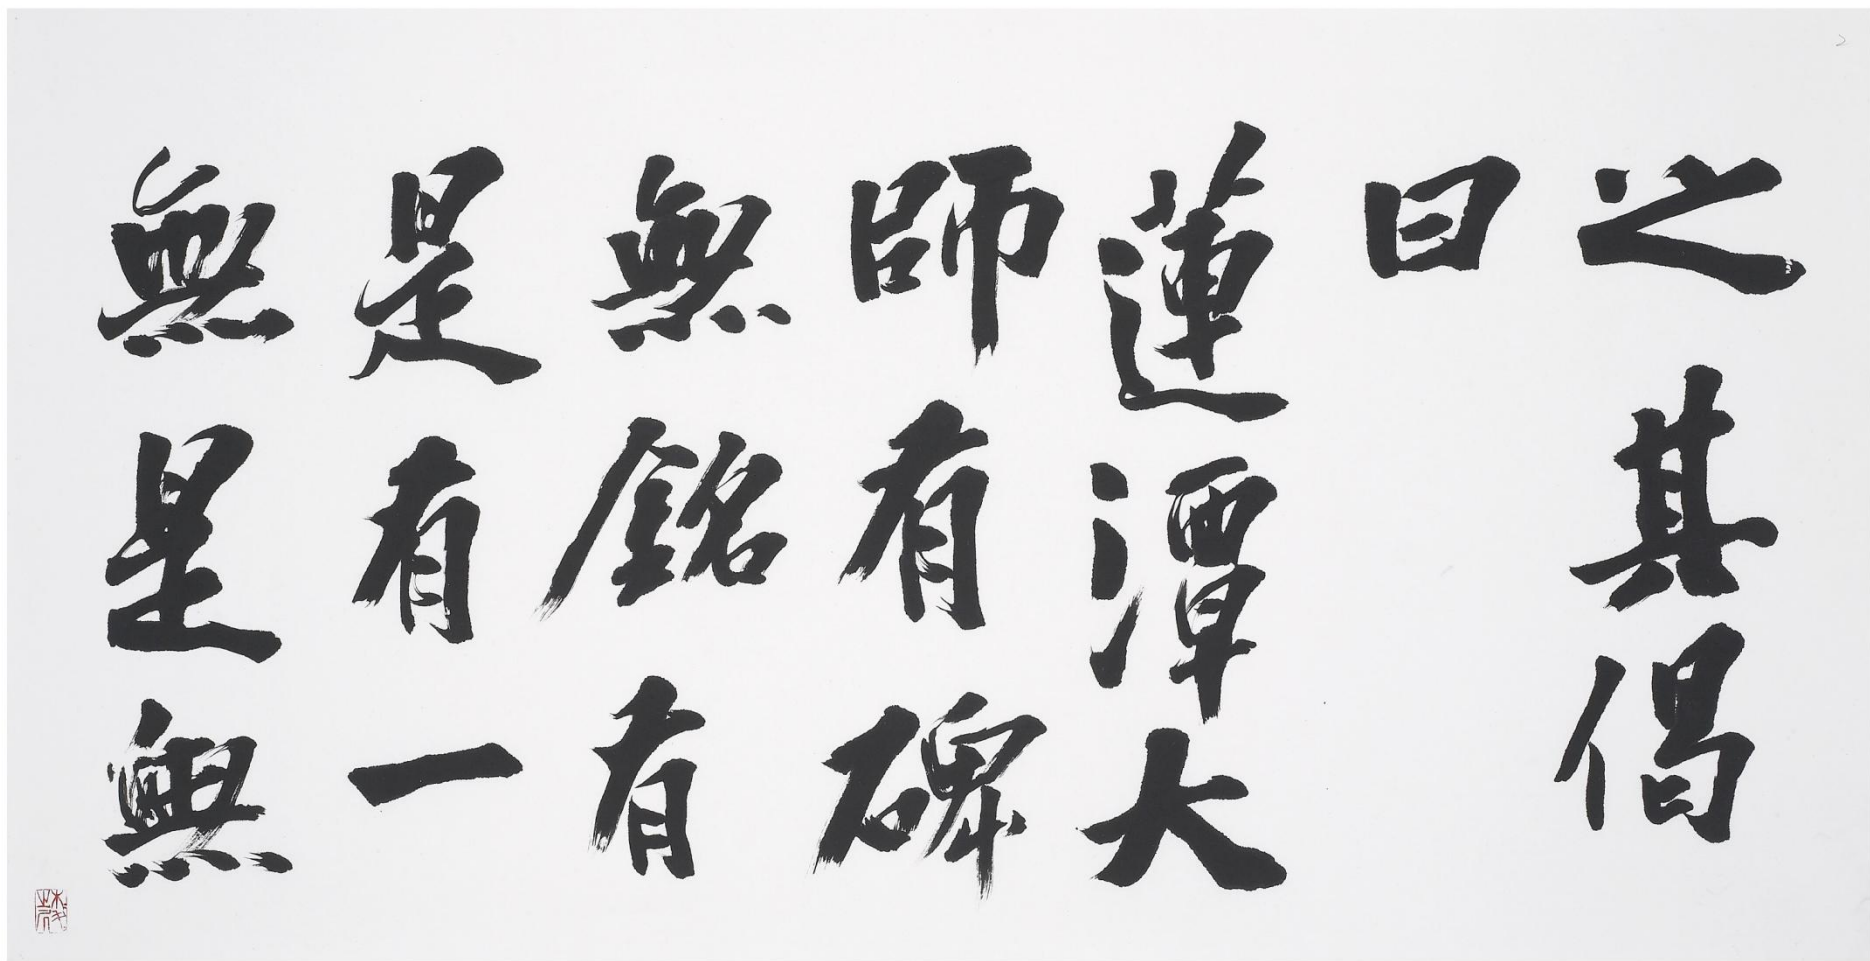 之其偈
曰
蓮潭大
師有碑
無銘有
是有一
無是無